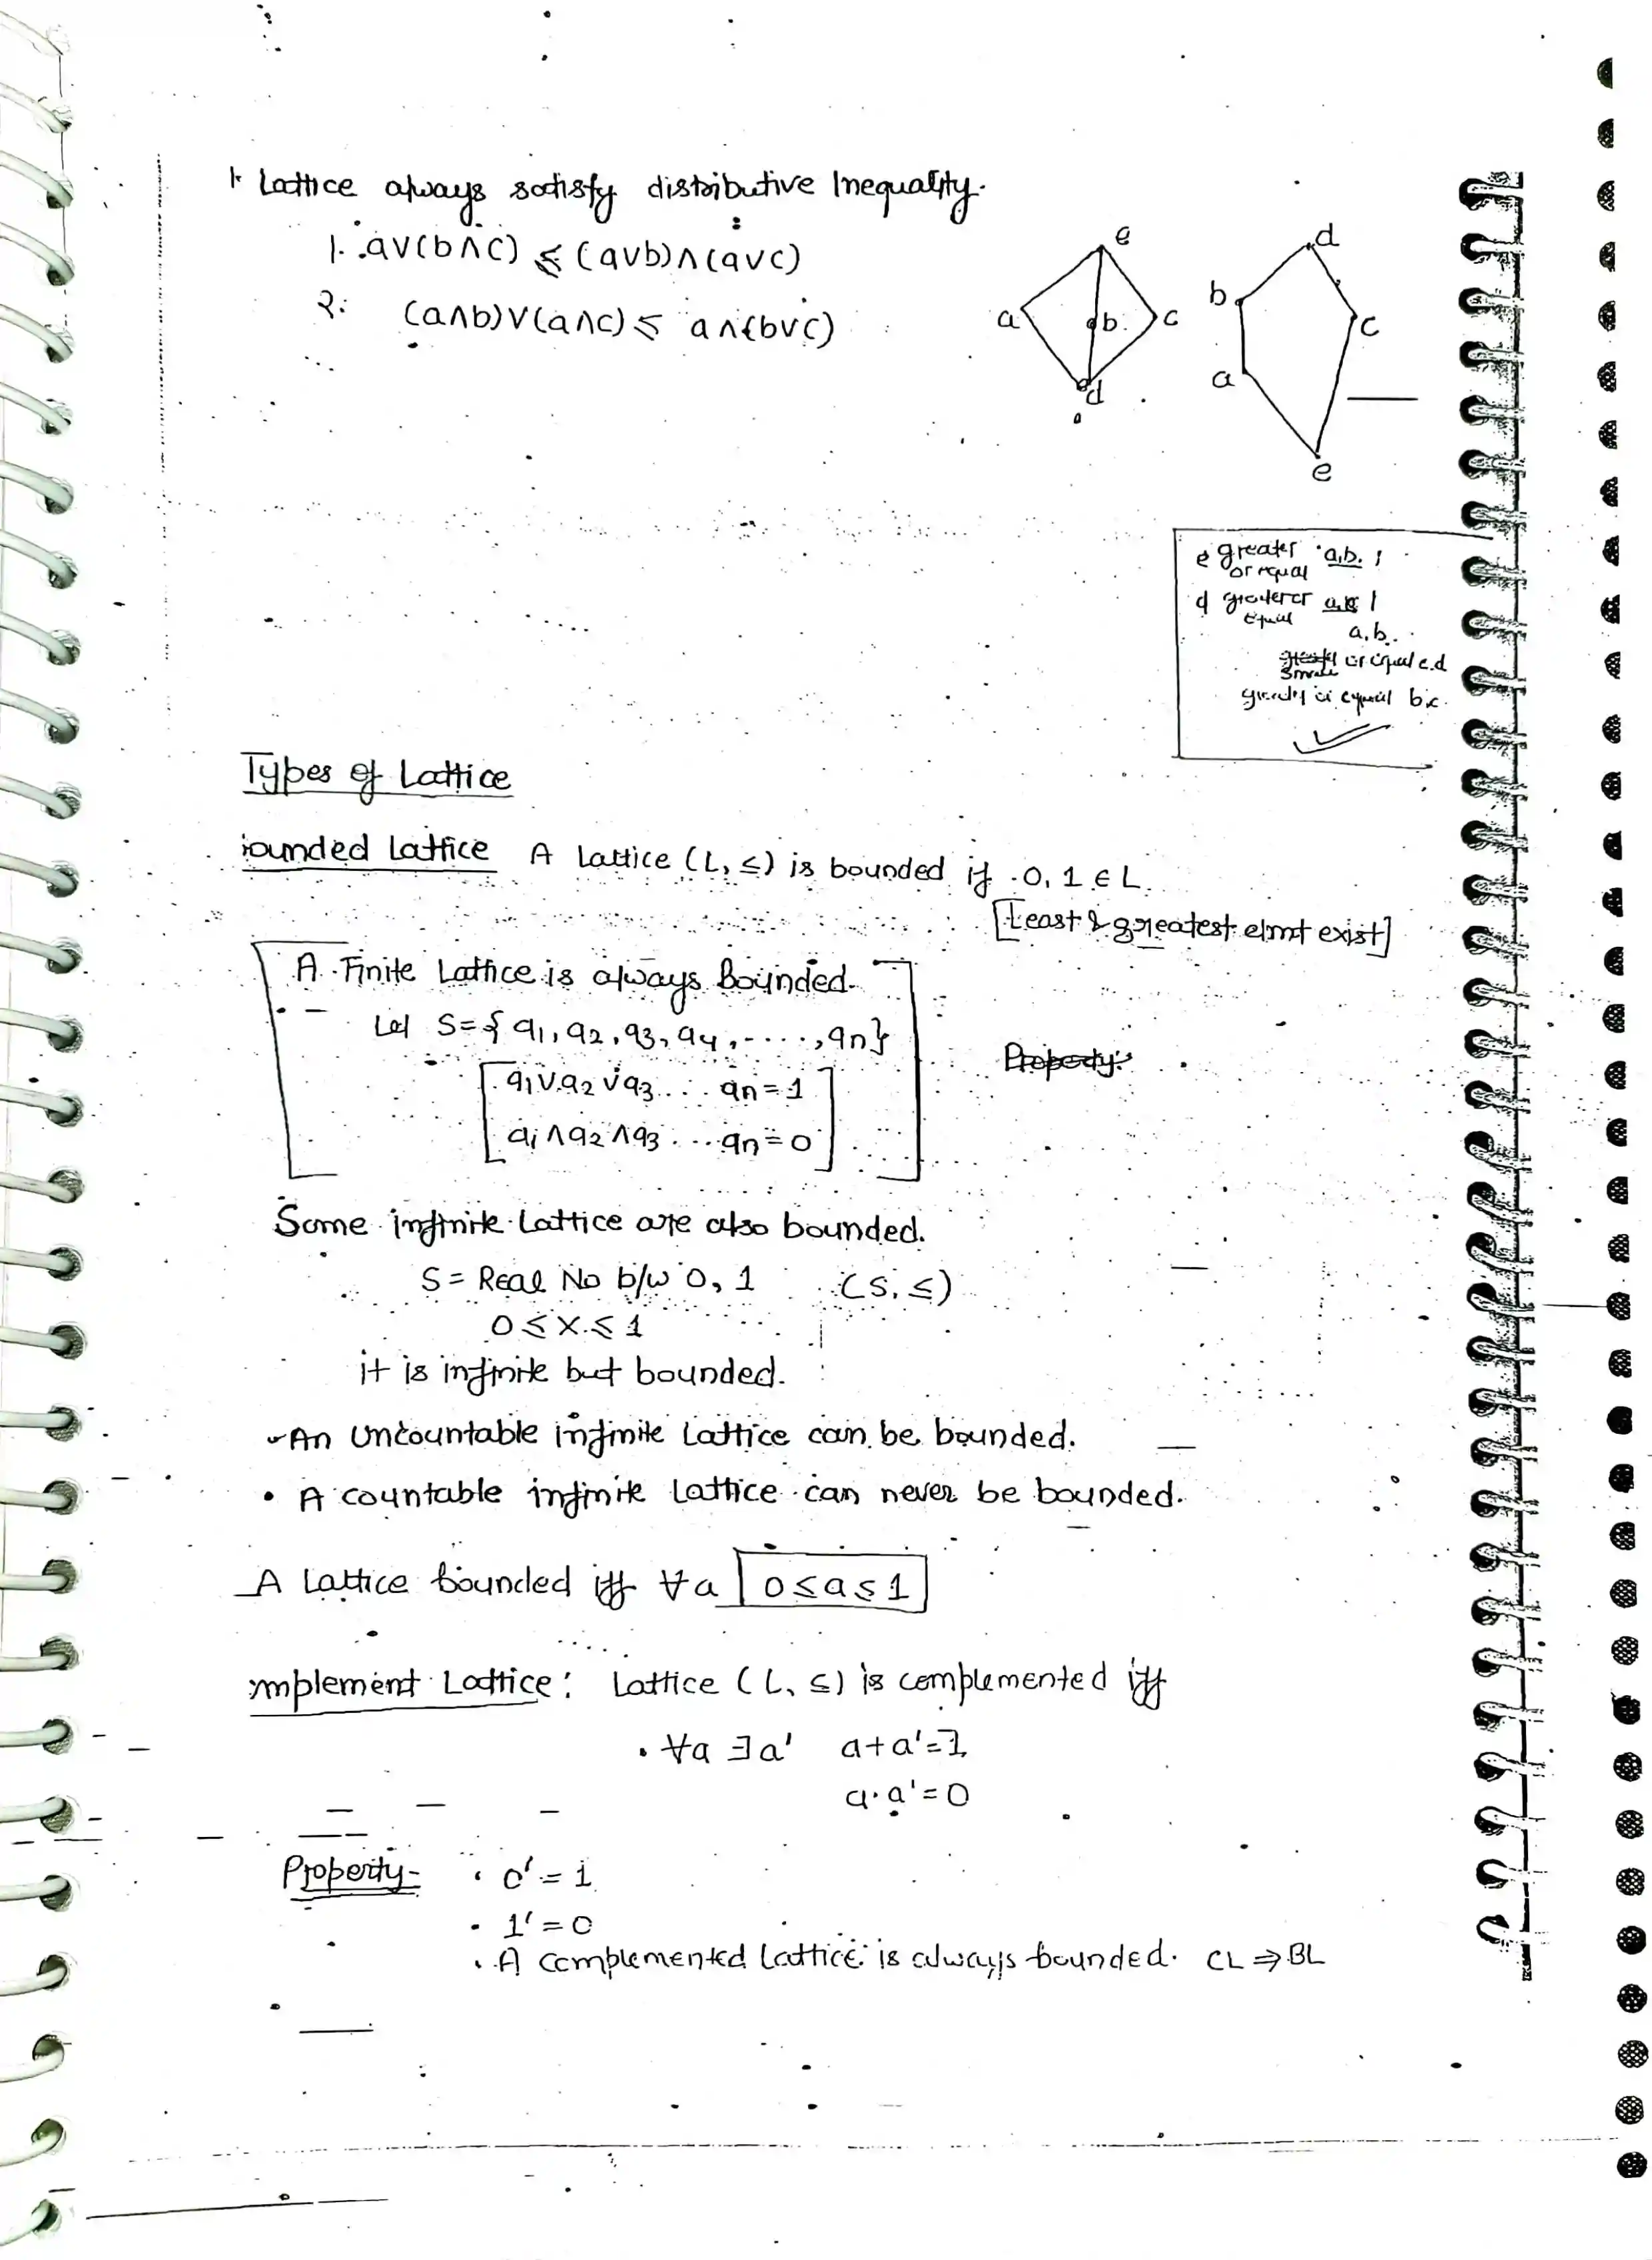 Lattice always satisfy distributive Inequality.
1. a∨(b∧c) ≤ (a∨b)∧(a∨c)
2: (a∧b)∨(a∧c) ≤ a∧(b∨c)
e
a b c
d
d
b
c
a
e
e greater a,b. ;
or equal
d greater or
equal
a,b.
small or equal c.d
greater or equal b,c.
Types of Lattice
ounded Lattice A Lattice (L, ≤) is bounded if 0, 1 ∈ L.
[Least & greatest elmt exist]
A Finite Lattice is always Bounded.
Let S={a1, a2, a3, a4, ....., an}
a1∨a2∨a3.... an=1
a1∧a2∧a3....an=0
Property:
Some infinite Lattice are also bounded.
S = Real No b/w 0, 1 (S, ≤)
0≤x≤1
it is infinite but bounded.
An Uncountable infinite Lattice can be bounded.
• A countable infinite Lattice can never be bounded.
A Lattice bounded iff ∀a 0≤a≤1
mplement Lattice: Lattice (L, ≤) is complemented iff
• ∀a ∃a' a+a'=1
a·a'=0
Property-
• 0'=1
• 1'=0
• A complemented Lattice is always bounded. CL ⇒ BL